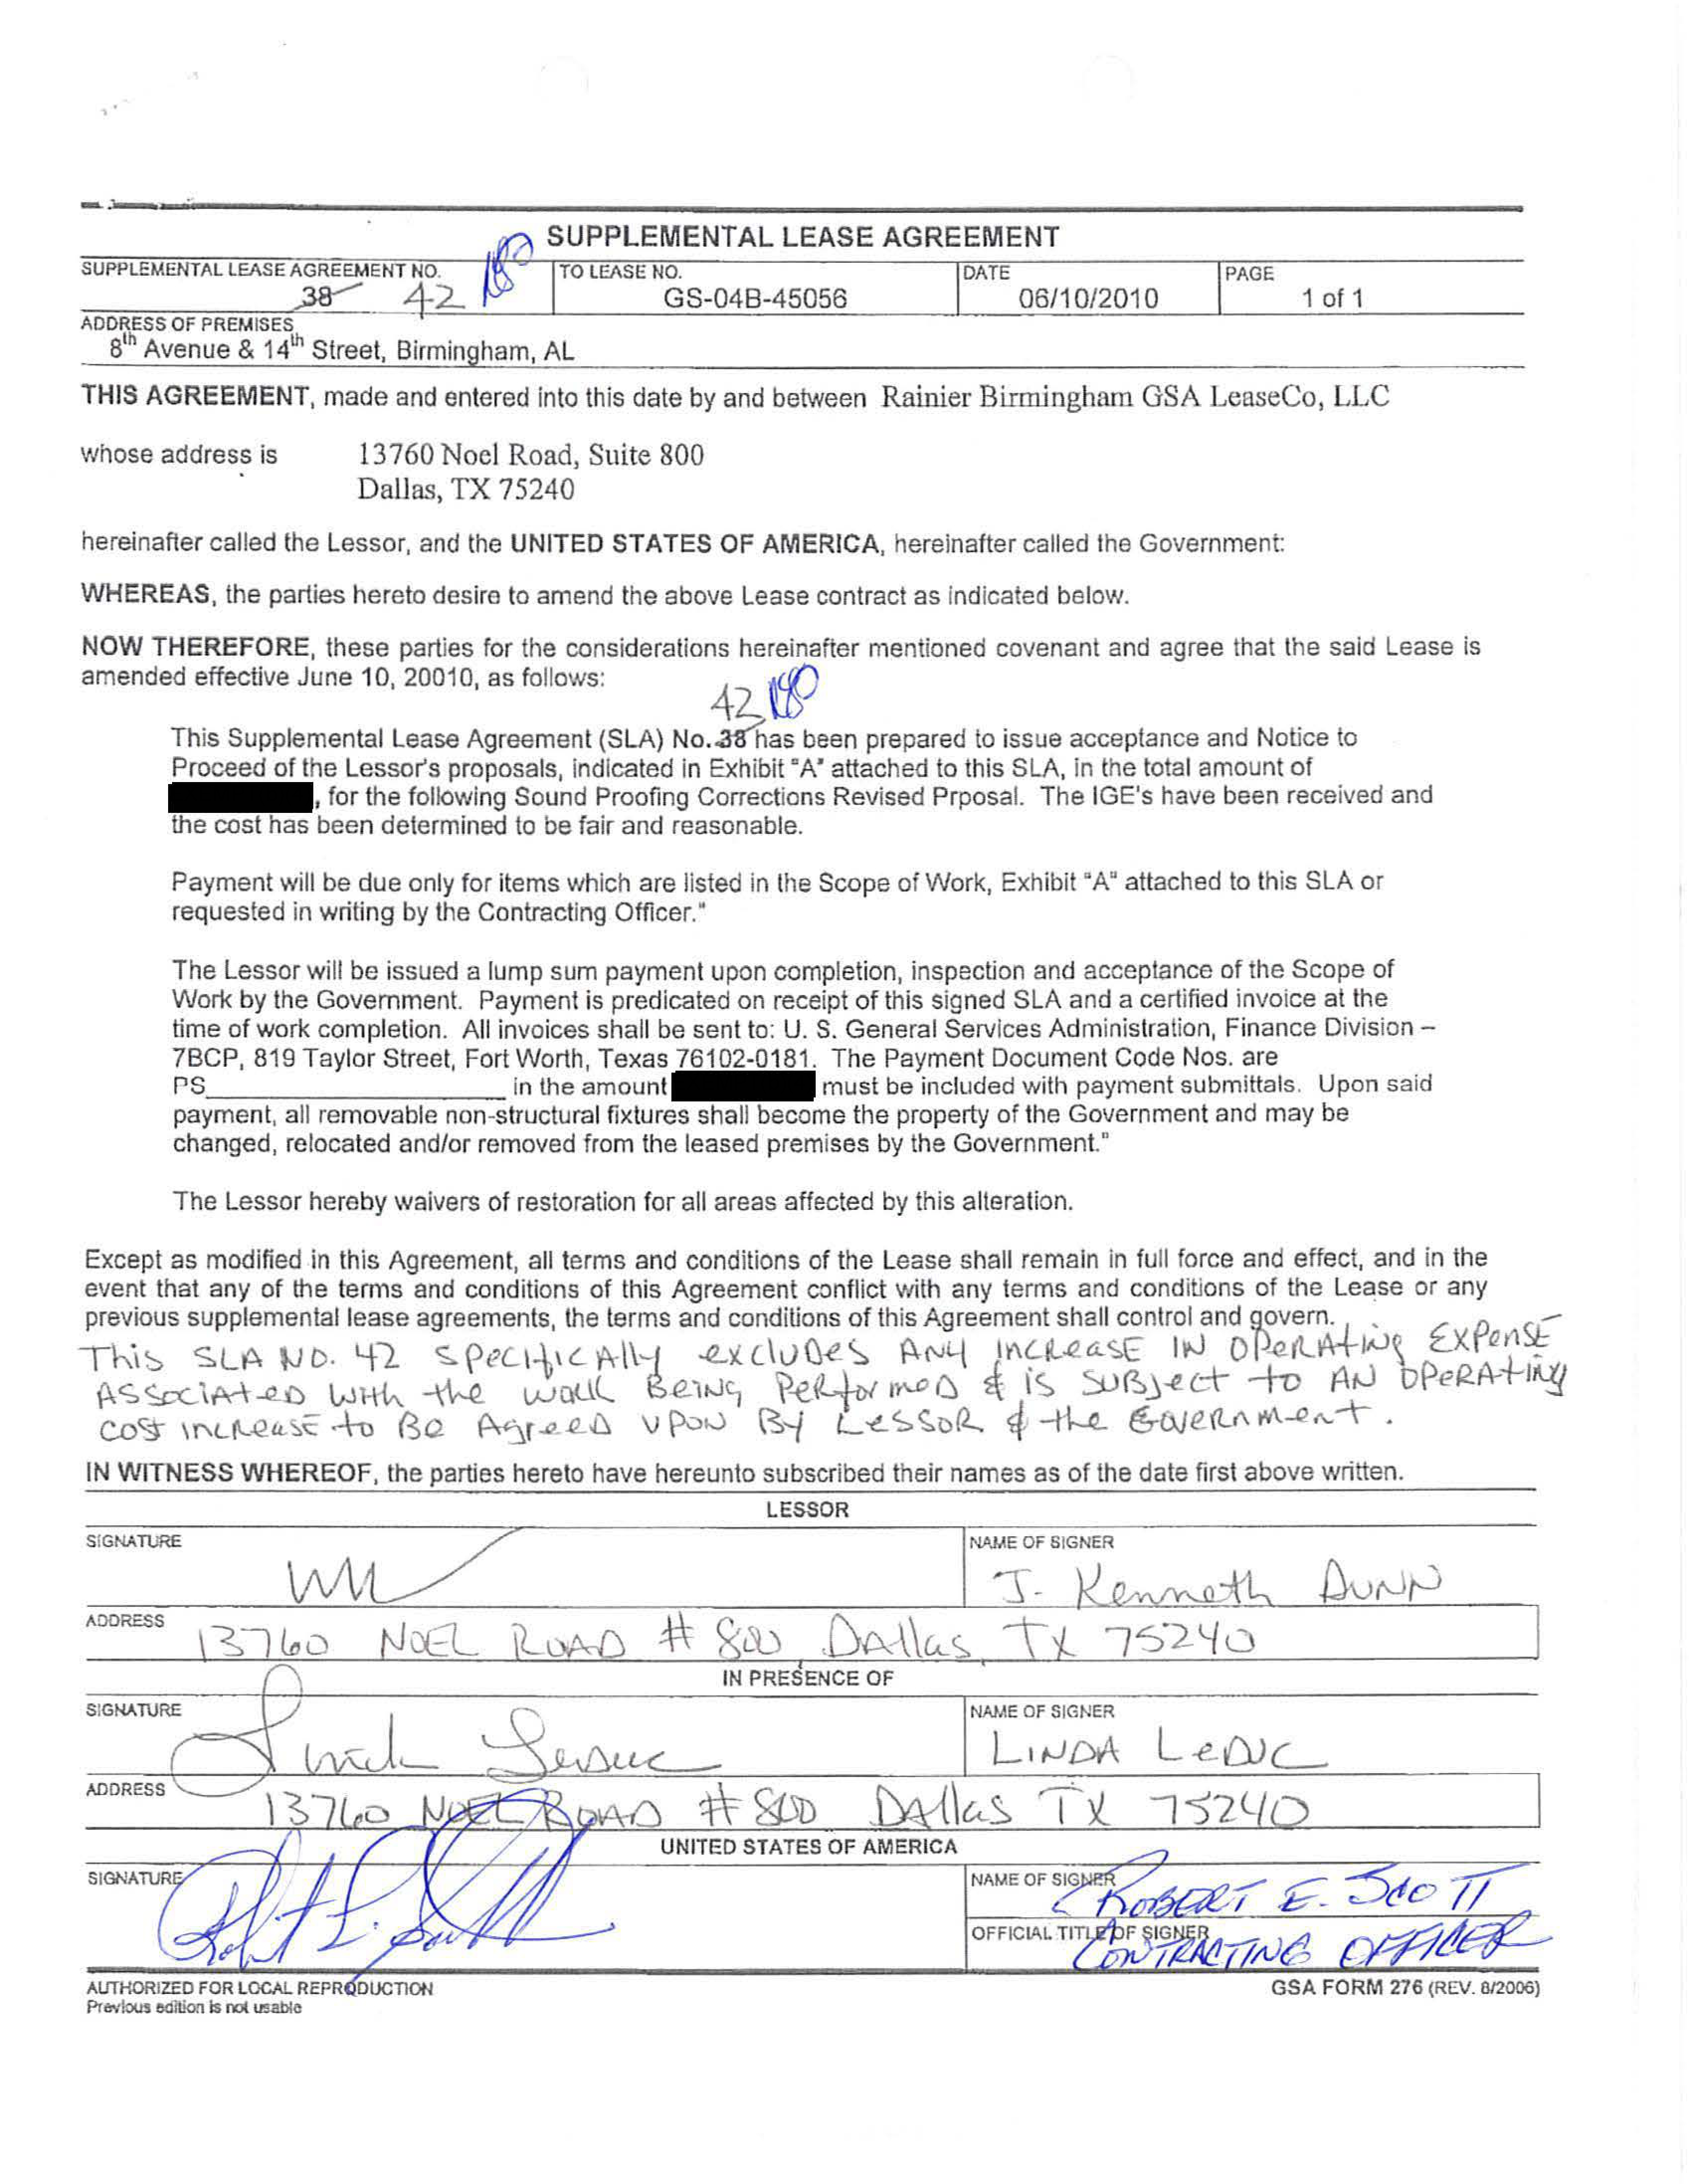 SUPPLEMENTAL LEASE AGREEMENT
SUPPLEMENTAL LEASE AGREEMENT NO. TO LEASE NO. DATE PAGE
38 42 GS-04B-45056 06/10/2010 1 of 1
ADDRESS OF PREMISES
8th Avenue & 14th Street, Birmingham, AL
THIS AGREEMENT, made and entered into this date by and between Rainier Birmingham GSA LeaseCo, LLC
whose address is 13760 Noel Road, Suite 800
Dallas, TX 75240
hereinafter called the Lessor, and the UNITED STATES OF AMERICA, hereinafter called the Government:
WHEREAS, the parties hereto desire to amend the above Lease contract as indicated below.
NOW THEREFORE, these parties for the considerations hereinafter mentioned covenant and agree that the said Lease is
amended effective June 10, 20010, as follows:
42
This Supplemental Lease Agreement (SLA) No. 38 has been prepared to issue acceptance and Notice to
Proceed of the Lessor's proposals, indicated in Exhibit "A" attached to this SLA, in the total amount of
, for the following Sound Proofing Corrections Revised Prposal. The IGE's have been received and
the cost has been determined to be fair and reasonable.
Payment will be due only for items which are listed in the Scope of Work, Exhibit "A" attached to this SLA or
requested in writing by the Contracting Officer."
The Lessor will be issued a lump sum payment upon completion, inspection and acceptance of the Scope of
Work by the Government. Payment is predicated on receipt of this signed SLA and a certified invoice at the
time of work completion. All invoices shall be sent to: U. S. General Services Administration, Finance Division –
7BCP, 819 Taylor Street, Fort Worth, Texas 76102-0181. The Payment Document Code Nos. are
PS in the amount must be included with payment submittals. Upon said
payment, all removable non-structural fixtures shall become the property of the Government and may be
changed, relocated and/or removed from the leased premises by the Government."
The Lessor hereby waivers of restoration for all areas affected by this alteration.
Except as modified in this Agreement, all terms and conditions of the Lease shall remain in full force and effect, and in the
event that any of the terms and conditions of this Agreement conflict with any terms and conditions of the Lease or any
previous supplemental lease agreements, the terms and conditions of this Agreement shall control and govern.
This SLA NO. 42 SPECIFICALLY EXCLUDES ANY INCREASE IN OPERATING EXPENSE
ASSOCIATED WITH the WORK BEING PERFORMED & is SUBJECT to AN OPERATING
COST INCREASE to BE AGREED UPON BY LESSOR & the GOVERNMENT.
IN WITNESS WHEREOF, the parties hereto have hereunto subscribed their names as of the date first above written.
LESSOR
SIGNATURE NAME OF SIGNER
J. Kenneth DUNN
ADDRESS 13760 NOEL ROAD # 800 DAllas, TX 75240
IN PRESENCE OF
SIGNATURE NAME OF SIGNER
Linda Leduc LINDA LeDUC
ADDRESS 13760 NOEL ROAD # 800 DAllas TX 75240
UNITED STATES OF AMERICA
SIGNATURE NAME OF SIGNER
Robert E. Scott ROBERT E. SCOTT
OFFICIAL TITLE OF SIGNER
CONTRACTING OFFICER
AUTHORIZED FOR LOCAL REPRODUCTION GSA FORM 276 (REV. 8/2006)
Previous edition is not usable